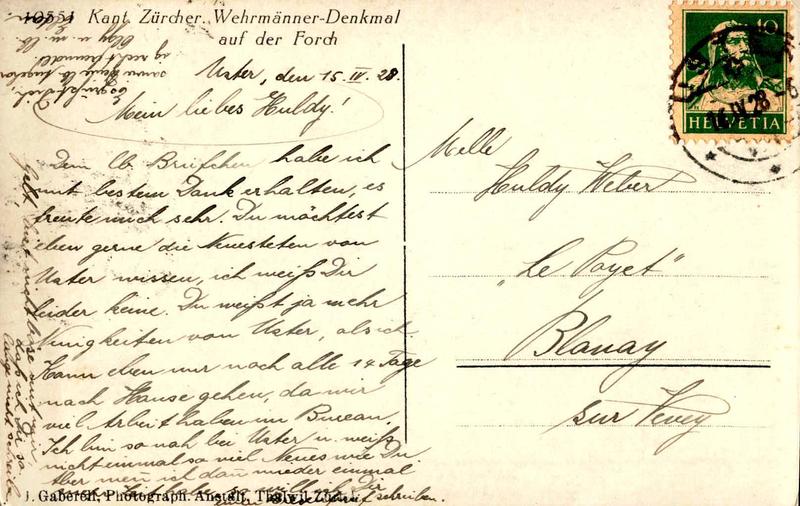 10551 Kant. Zürcher. Wehrmänner-Denkmal
auf der Forch
Uster, den 15. IV. 28.
Mein liebes Huldy!
Dein lb. Briefchen habe ich
mit bestem Dank erhalten, es
freute mich sehr. Du möchtest
eben gerne die Neuesteten von
Uster wissen, ich weiß Dir
leider keine. Du weißt ja mehr
Neuigkeiten von Uster, als ich.
Kann eben nur noch alle 14 Tage
nach Hause gehen, da wir
viel Arbeit haben im Bureau.
Ich bin so nah bei Uster u. weiß
nicht einmal so viel Neues wie Du.
Aber wenn ich dann wieder einmal
will ich Dir
schreiben.
Gelt, bist nicht böse mit mir,
daß ich Dir so
lang nicht schreibe
J. Gaberell, Photograph. Anstalt, Thalwil-Zürich
Melle
Huldy Weber
"Le Poyet"
Blonay
sur Vevey
10
HELVETIA
16.IV.28